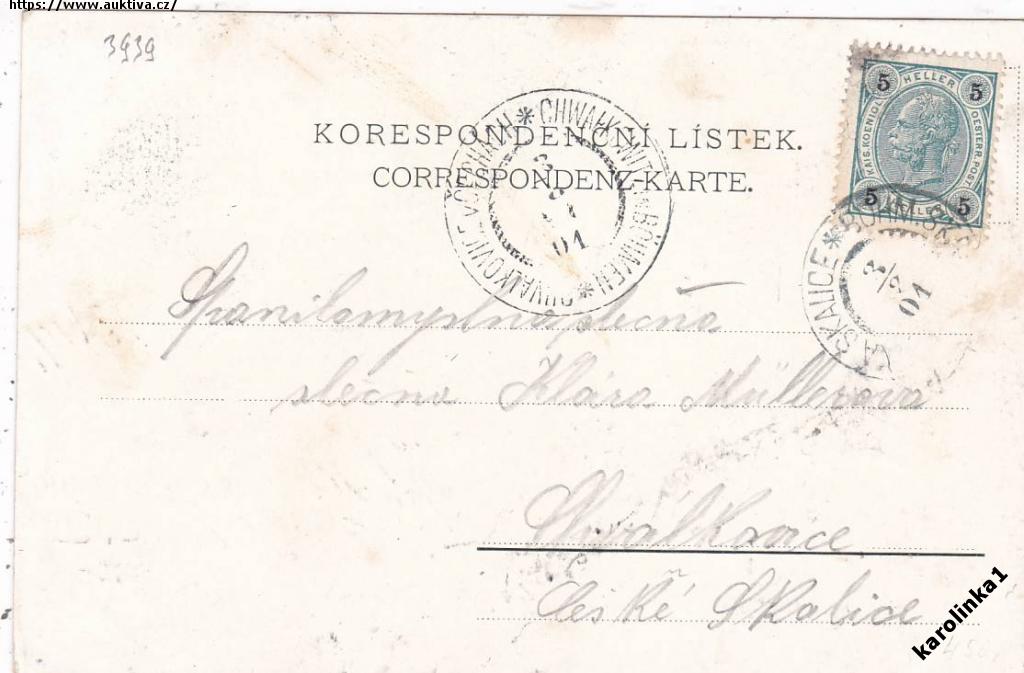 https://www.auktiva.cz/
3939
KORESPONDENČNÍ LÍSTEK.
CORRESPONDENZ-KARTE.
5 HELLER 5
KAIS. KOENIGL. OESTERR. POST
5 HELLER 5
CHWALKOWITZ BÖHMEN * CHVALKOVICE V ČECHÁCH *
01
SKALICE * BÖHM. SKA
3/8
01
slečna
slečna Klára Müllerova
Chvalkovice
České Skalice
karolinka1